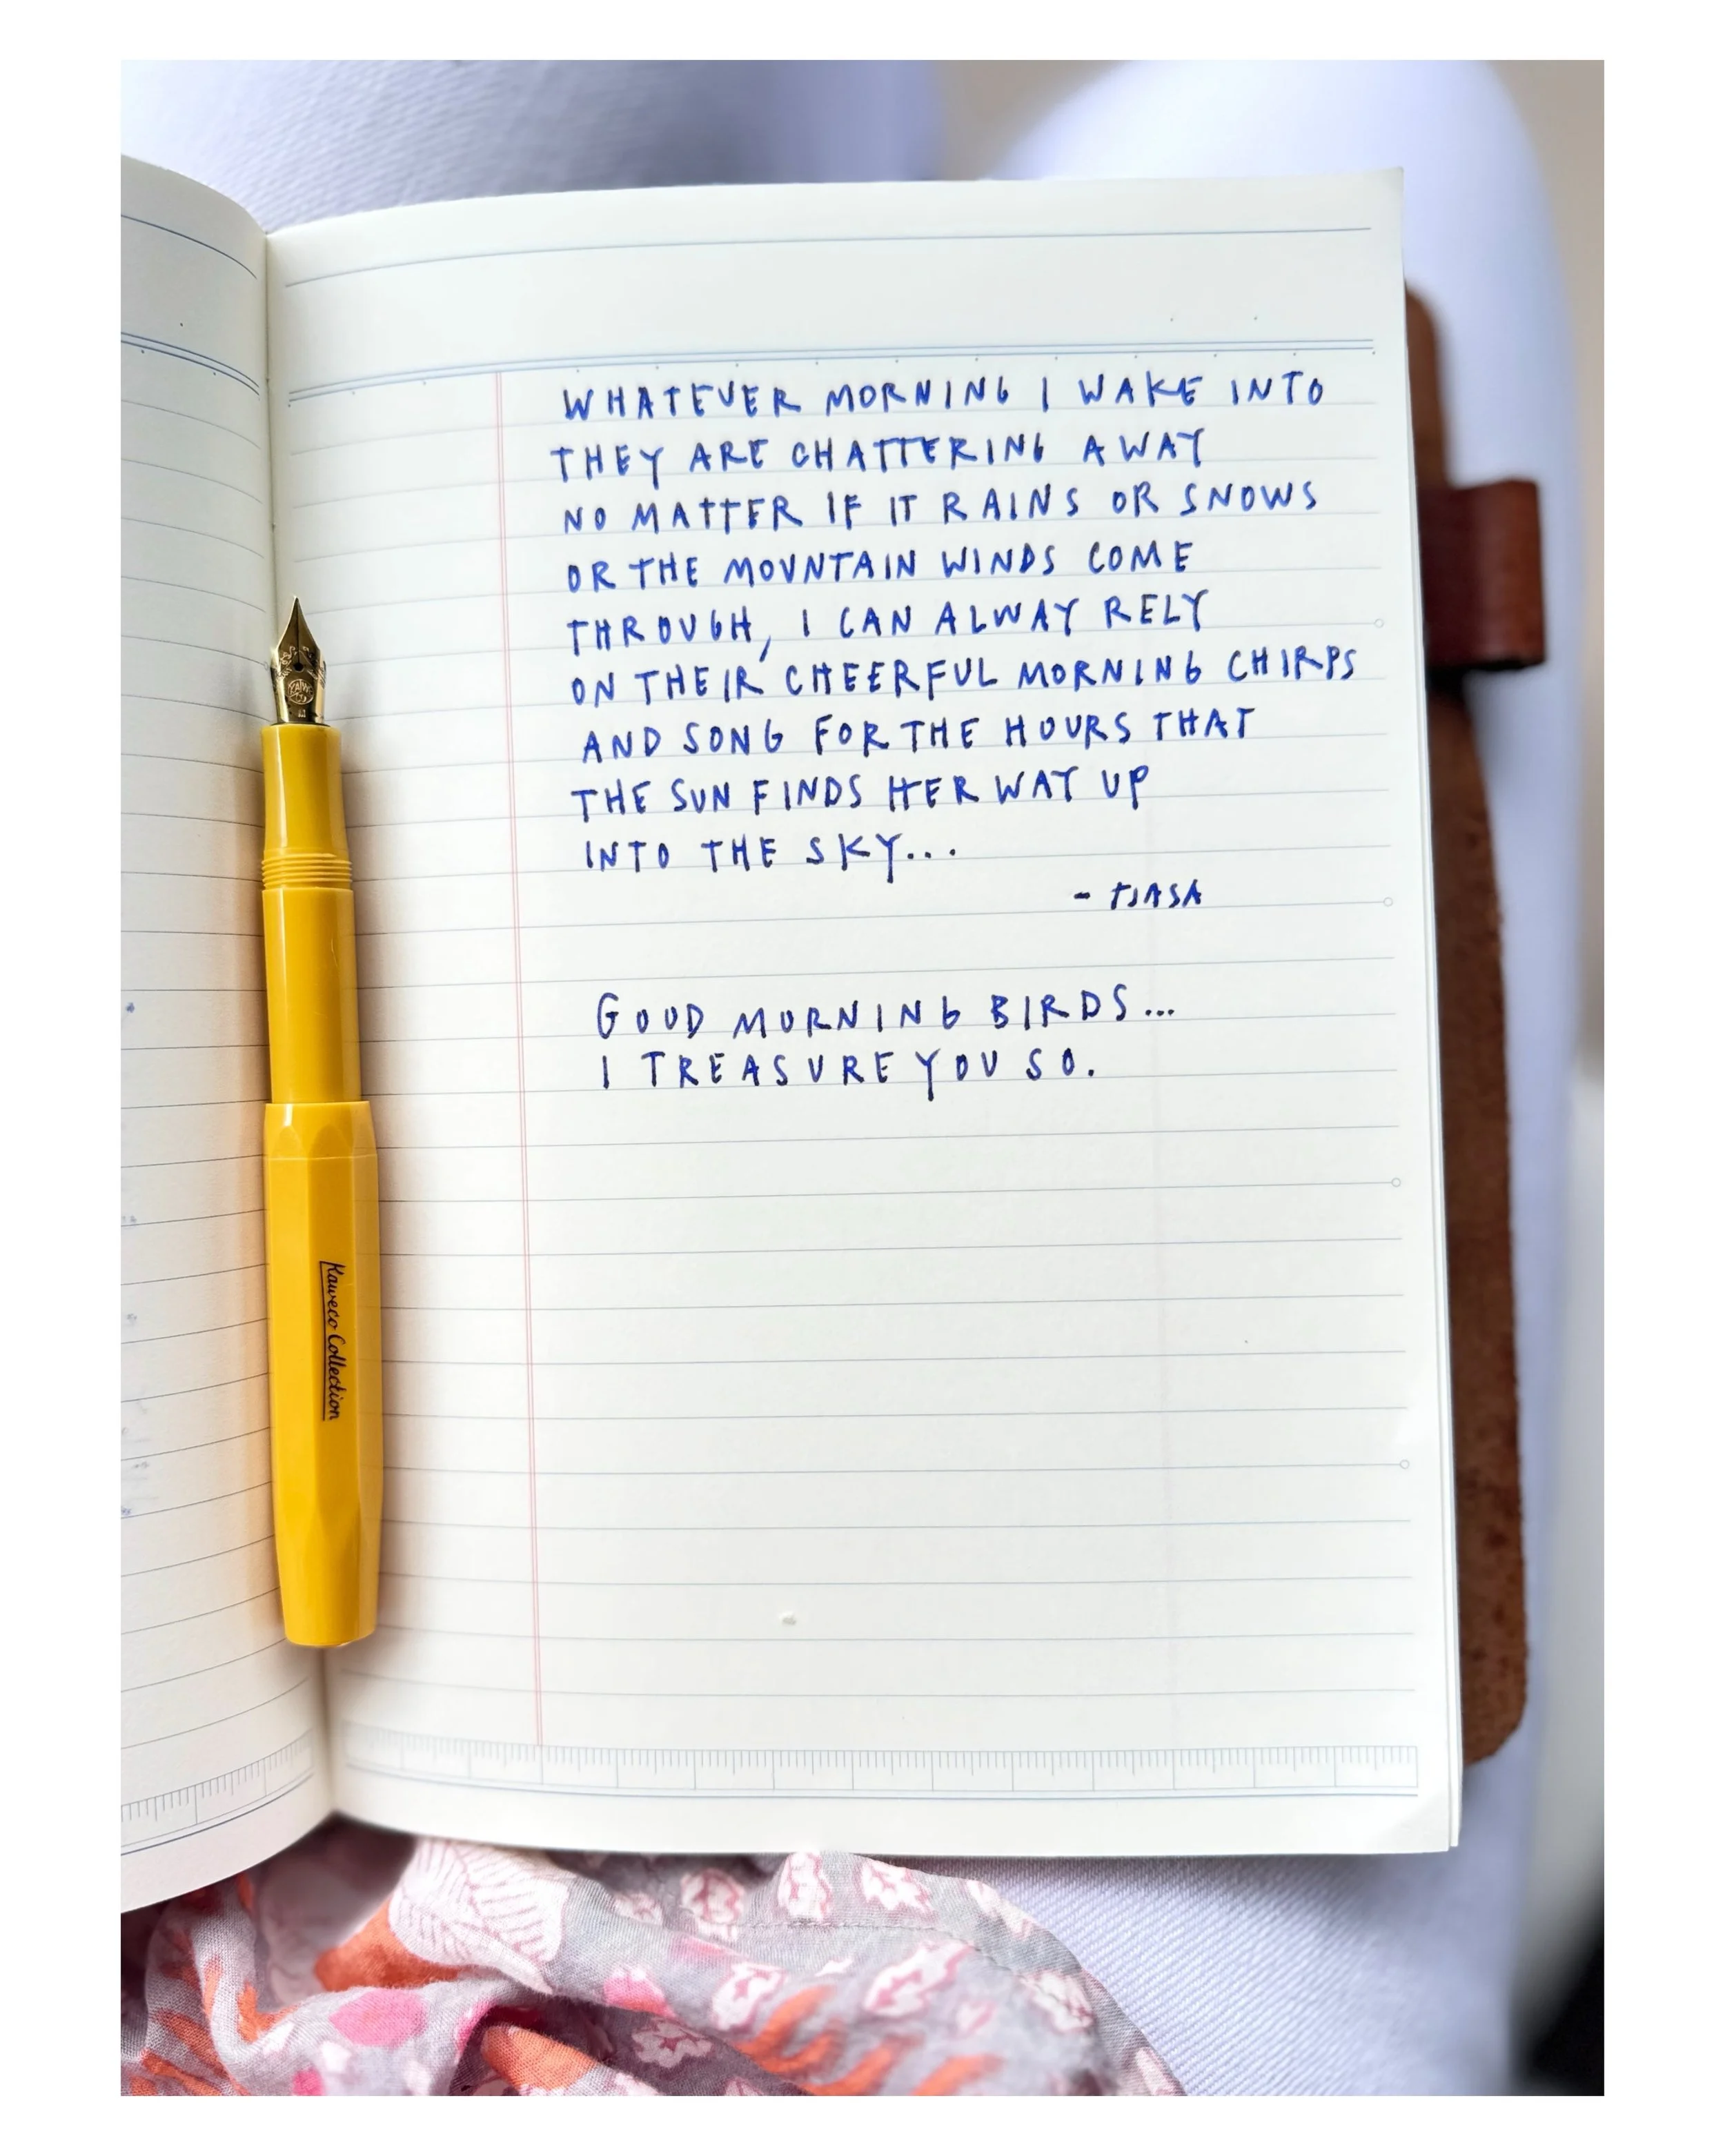 WHATEVER MORNING I WAKE INTO
THEY ARE CHATTERING AWAY
NO MATTER IF IT RAINS OR SNOWS
OR THE MOUNTAIN WINDS COME
THROUGH, I CAN ALWAY RELY
ON THEIR CHEERFUL MORNING CHIRPS
AND SONG FOR THE HOURS THAT
THE SUN FINDS HER WAY UP
INTO THE SKY...
- TJASA
GOOD MORNING BIRDS...
I TREASURE YOU SO.
Kaweco Collection